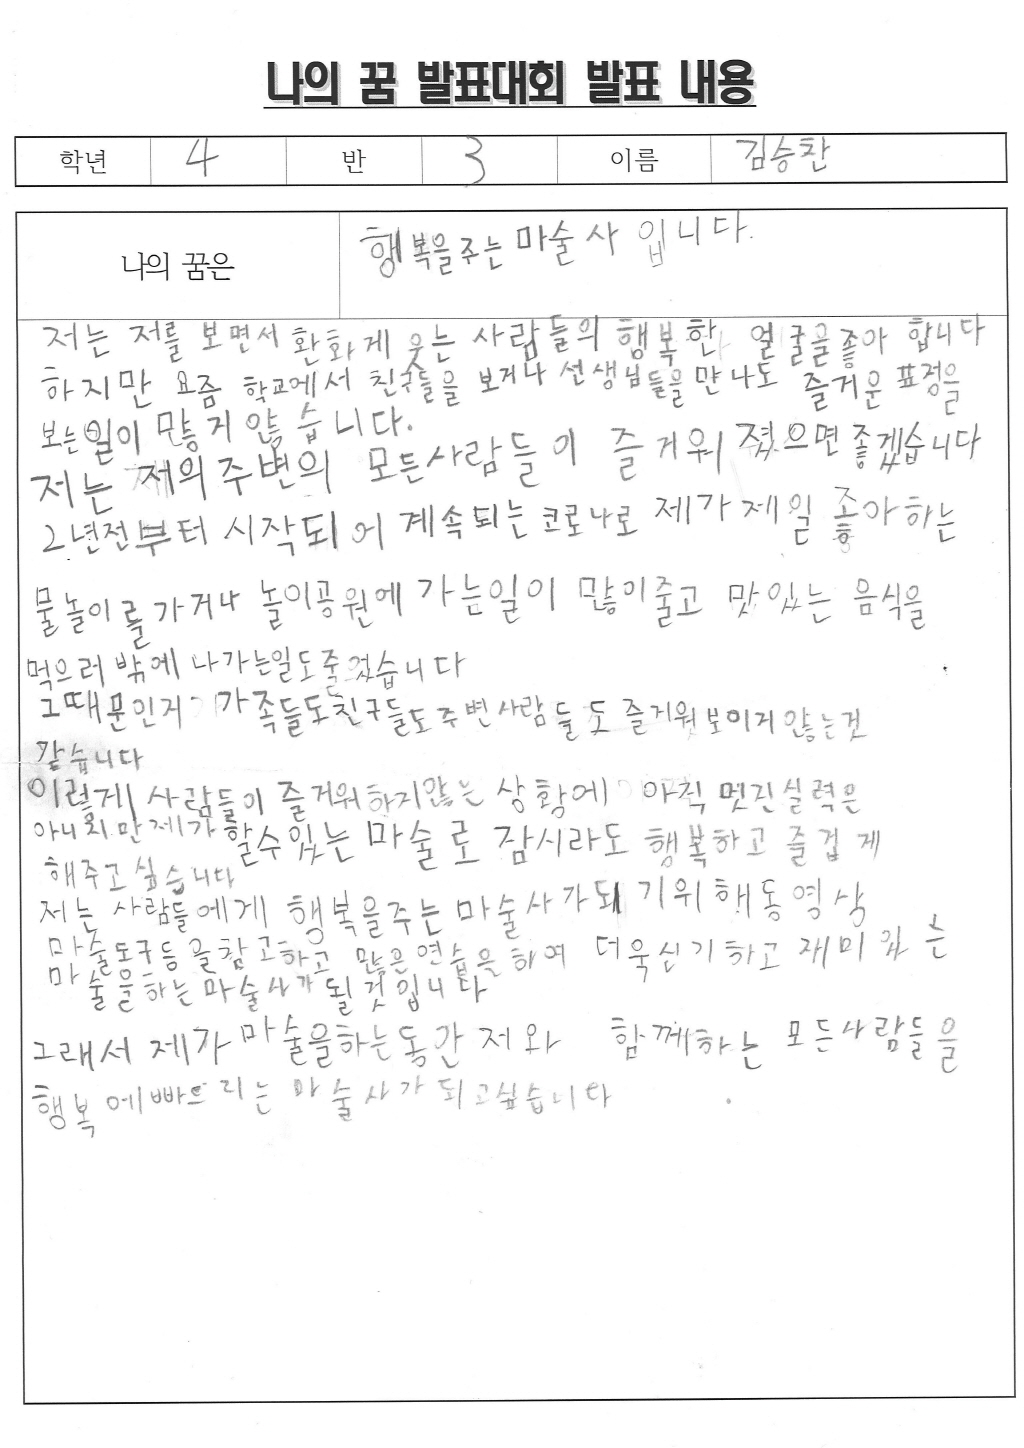 나의 꿈 발표대회 발표 내용
학년 4 반 3 이름 김승찬
나의 꿈은 행복을주는 마술사 입니다.
저는 저를 보면서 환화게 웃는 사람들의 행복한 얼굴을좋아 합니다
하지만 요즘 학교에서 친구들을 보거나 선생님들을 만나도 즐거운 표정을
보는일이 많치 않습니다.
저는 저의 주변의 모든사람들이 즐거워 졌으면 좋겠습니다
2년전부터 시작되어 계속되는 코로나로 제가 제일 좋아하는
물놀이를 가거나 놀이공원에 가는일이 많이줄고 맛있는 음식을
먹으러 밖에 나가는일도줄었습니다
그때문인지 가족들도친구들도주변사람들도 즐거워보이지 않는것
같습니다
이렇게 사람들이 즐거워하지않는 상황에 아직 멋진실력은
아니지만 제가 할수있는 마술로 잠시라도 행복하고 즐겁게
해주고 싶습니다
저는 사람들에게 행복을주는 마술사가되기위해동영상
마술도구등을참고하고 많은연습을하여 더욱신기하고 재미있는
마술을하는마술사가될것입니다
그래서 제가 마술을하는동안 저와 함께하는 모든사람들을
행복에빠뜨리는 마술사가 되고싶습니다